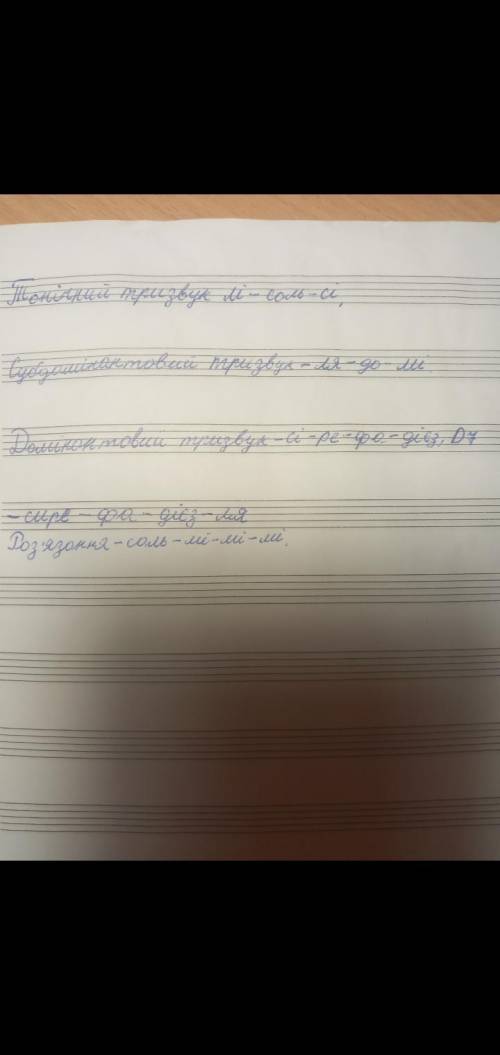 Тонічний тризвук мі-соль-сі,
Субдомінантовий тризвук-ля-до-мі
Домінантовий тризвук-сі-ре-фа-дієз, D7
-сире-фа-дієз-ля
Роз'язання-соль-мі-мі-мі.